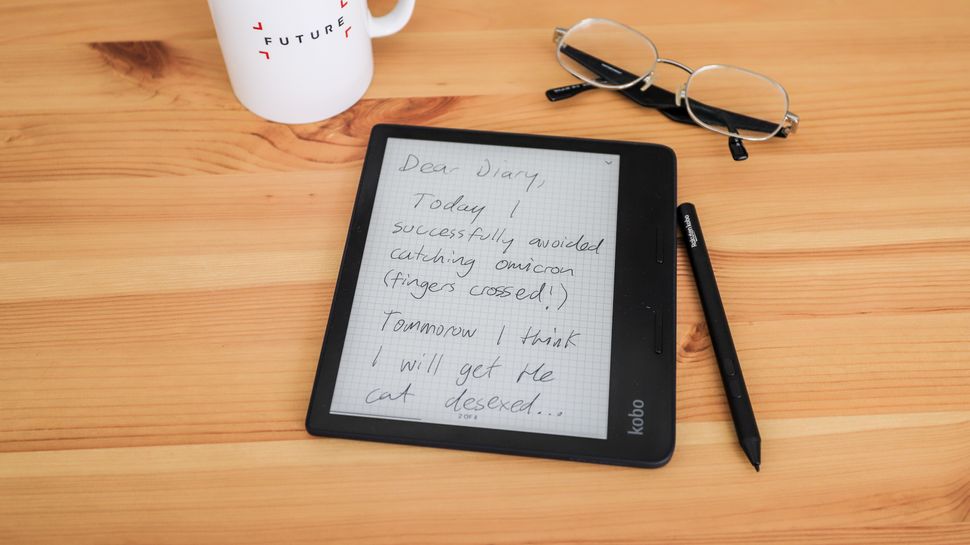 FUTURE
Dear Diary,
Today I
successfully avoided
catching omicron
(fingers crossed!)
Tommorow I think
I will get the
cat desexed...
2 OF 4
kobo
Rakuten kobo